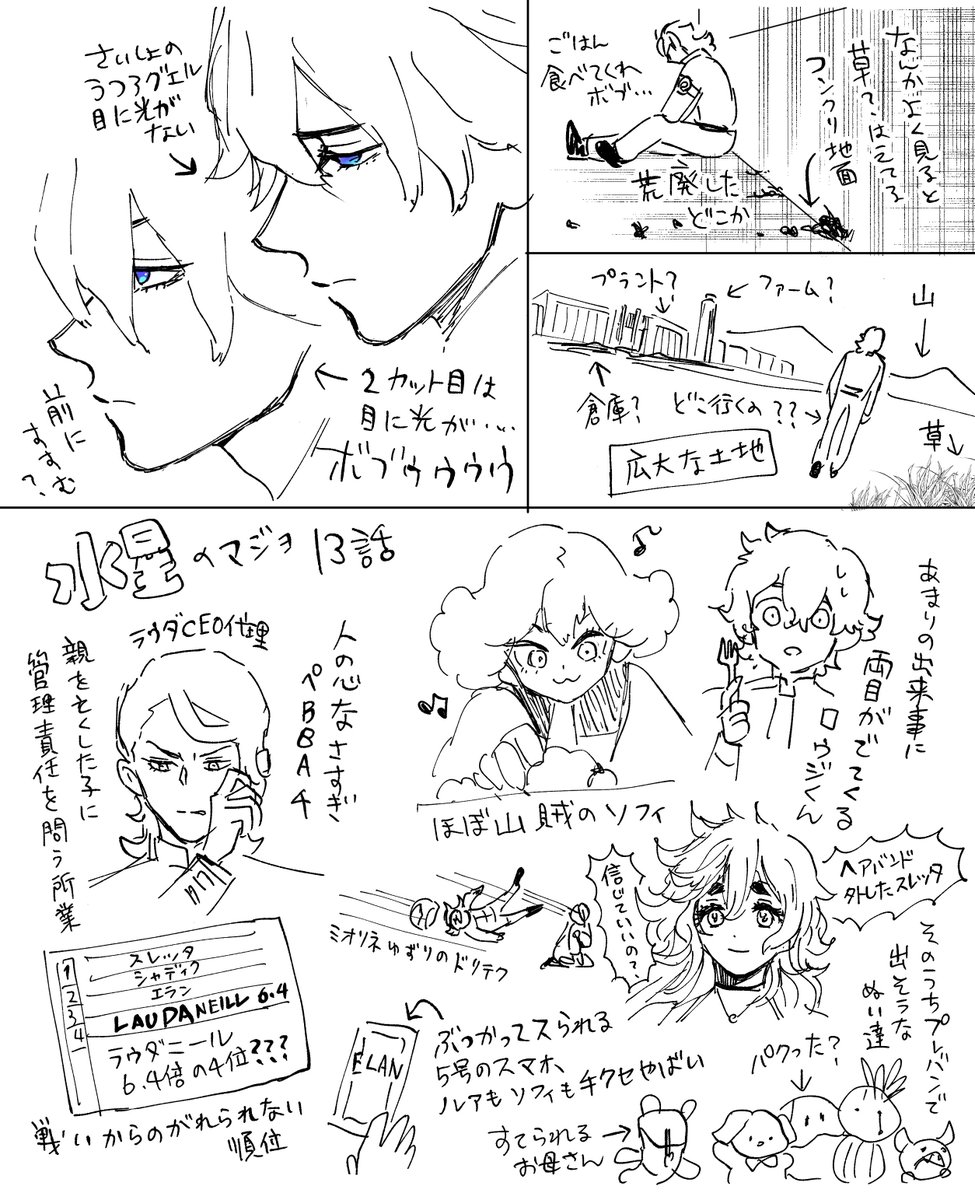 さいしょの
うつろグエル
目に光が
ない
2カット目は
目に光が‥‥
ボブゥゥゥゥ
前に
すすむ?
なんかよく見ると
草?はえてる
コンクリ地面
ごはん
食べてくれ
ボブ…
荒廃した
どこか
プラント?
ファーム?
山
倉庫?
どこ行くの??
草
広大な土地
水星のマジョ 13話
ラウダCEO代理
人の心なさすぎ
ペBBAチ
親を亡くした子に
管理責任を問う所業
あまりの出来事に
両目がでてくる
ロウジくん
ほぼ山賊のソフィ
ヘアバンド
外したスレッタ
信じていいの?
ミオリネゆずりのドリテク
1
スレッタ
2
シャディク
3
エラン
4
LAUDANEILL 6.4
ラウダニール
6.4倍の4位???
戦いからのがれられない
順位
ELAN
ぶつかってスられる
5号のスマホ、
ルアもソフィも手クセやばい
そのうちプレバンで
出そうな
ぬい達
パクった?
すてられる
お母さん